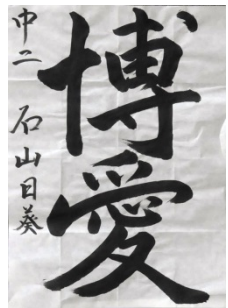 博愛
中二 石山日葵